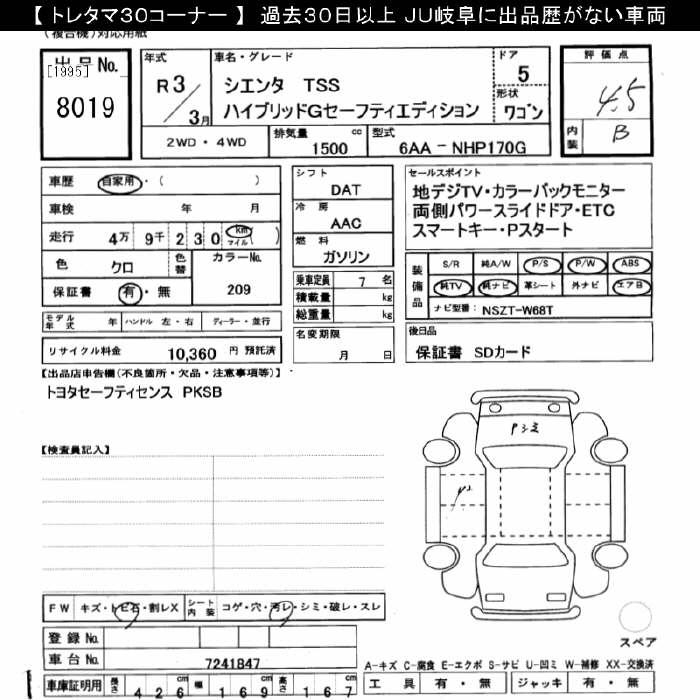 【 トレタマ30コーナー 】 過去30日以上 JU岐阜に出品歴がない車両
(複合機)対応用紙
出品No.
[1995]
8019
年式
R 3
3月
車名・グレード
シエンタ TSS
ハイブリッドGセーフティエディション
ドア
5
形状
ワゴン
2WD・4WD
排気量
1500 cc
型式
6AA - NHP170G
評価点
4.5
内装
B
車歴 自家用・( )
車検 年 月
走行 4万 9千 2 3 0 km マイル( )
色 クロ
色替
カラーNo.
209
保証書 有・無
モデル年式 年 ハンドル 左・右 ディーラー・並行
リサイクル料金 10,360 円 預託済
シフト
DAT
冷房
AAC
燃料
ガソリン
乗車定員 7 名
積載量 kg
総重量 kg
名変期限
月 日
セールスポイント
地デジTV・カラーバックモニター
両側パワースライドドア・ETC
スマートキー・Pスタート
装備品
S/R 純A/W P/S P/W ABS
純TV 純ナビ 革シート 外ナビ エアB
ナビ型番: NSZT-W68T
後日品
保証書 SDカード
【出品店申告欄(不良箇所・欠品・注意事項等)】
トヨタセーフティセンス PKSB
【検査員記入】
FW キズ・トビ石・割レX
シート内装 コゲ・穴・汚レ・シミ・破レ・スレ
登録 No.
車台 No. 7241847
車庫証明用 長さ 4 2 6 cm 幅 1 6 9 cm 高さ 1 6 7 cm
スペア
A-キズ C-腐食 E-エクボ S-サビ U-凹ミ W-補修 XX-交換済
工具 有・無 ジャッキ 有・無